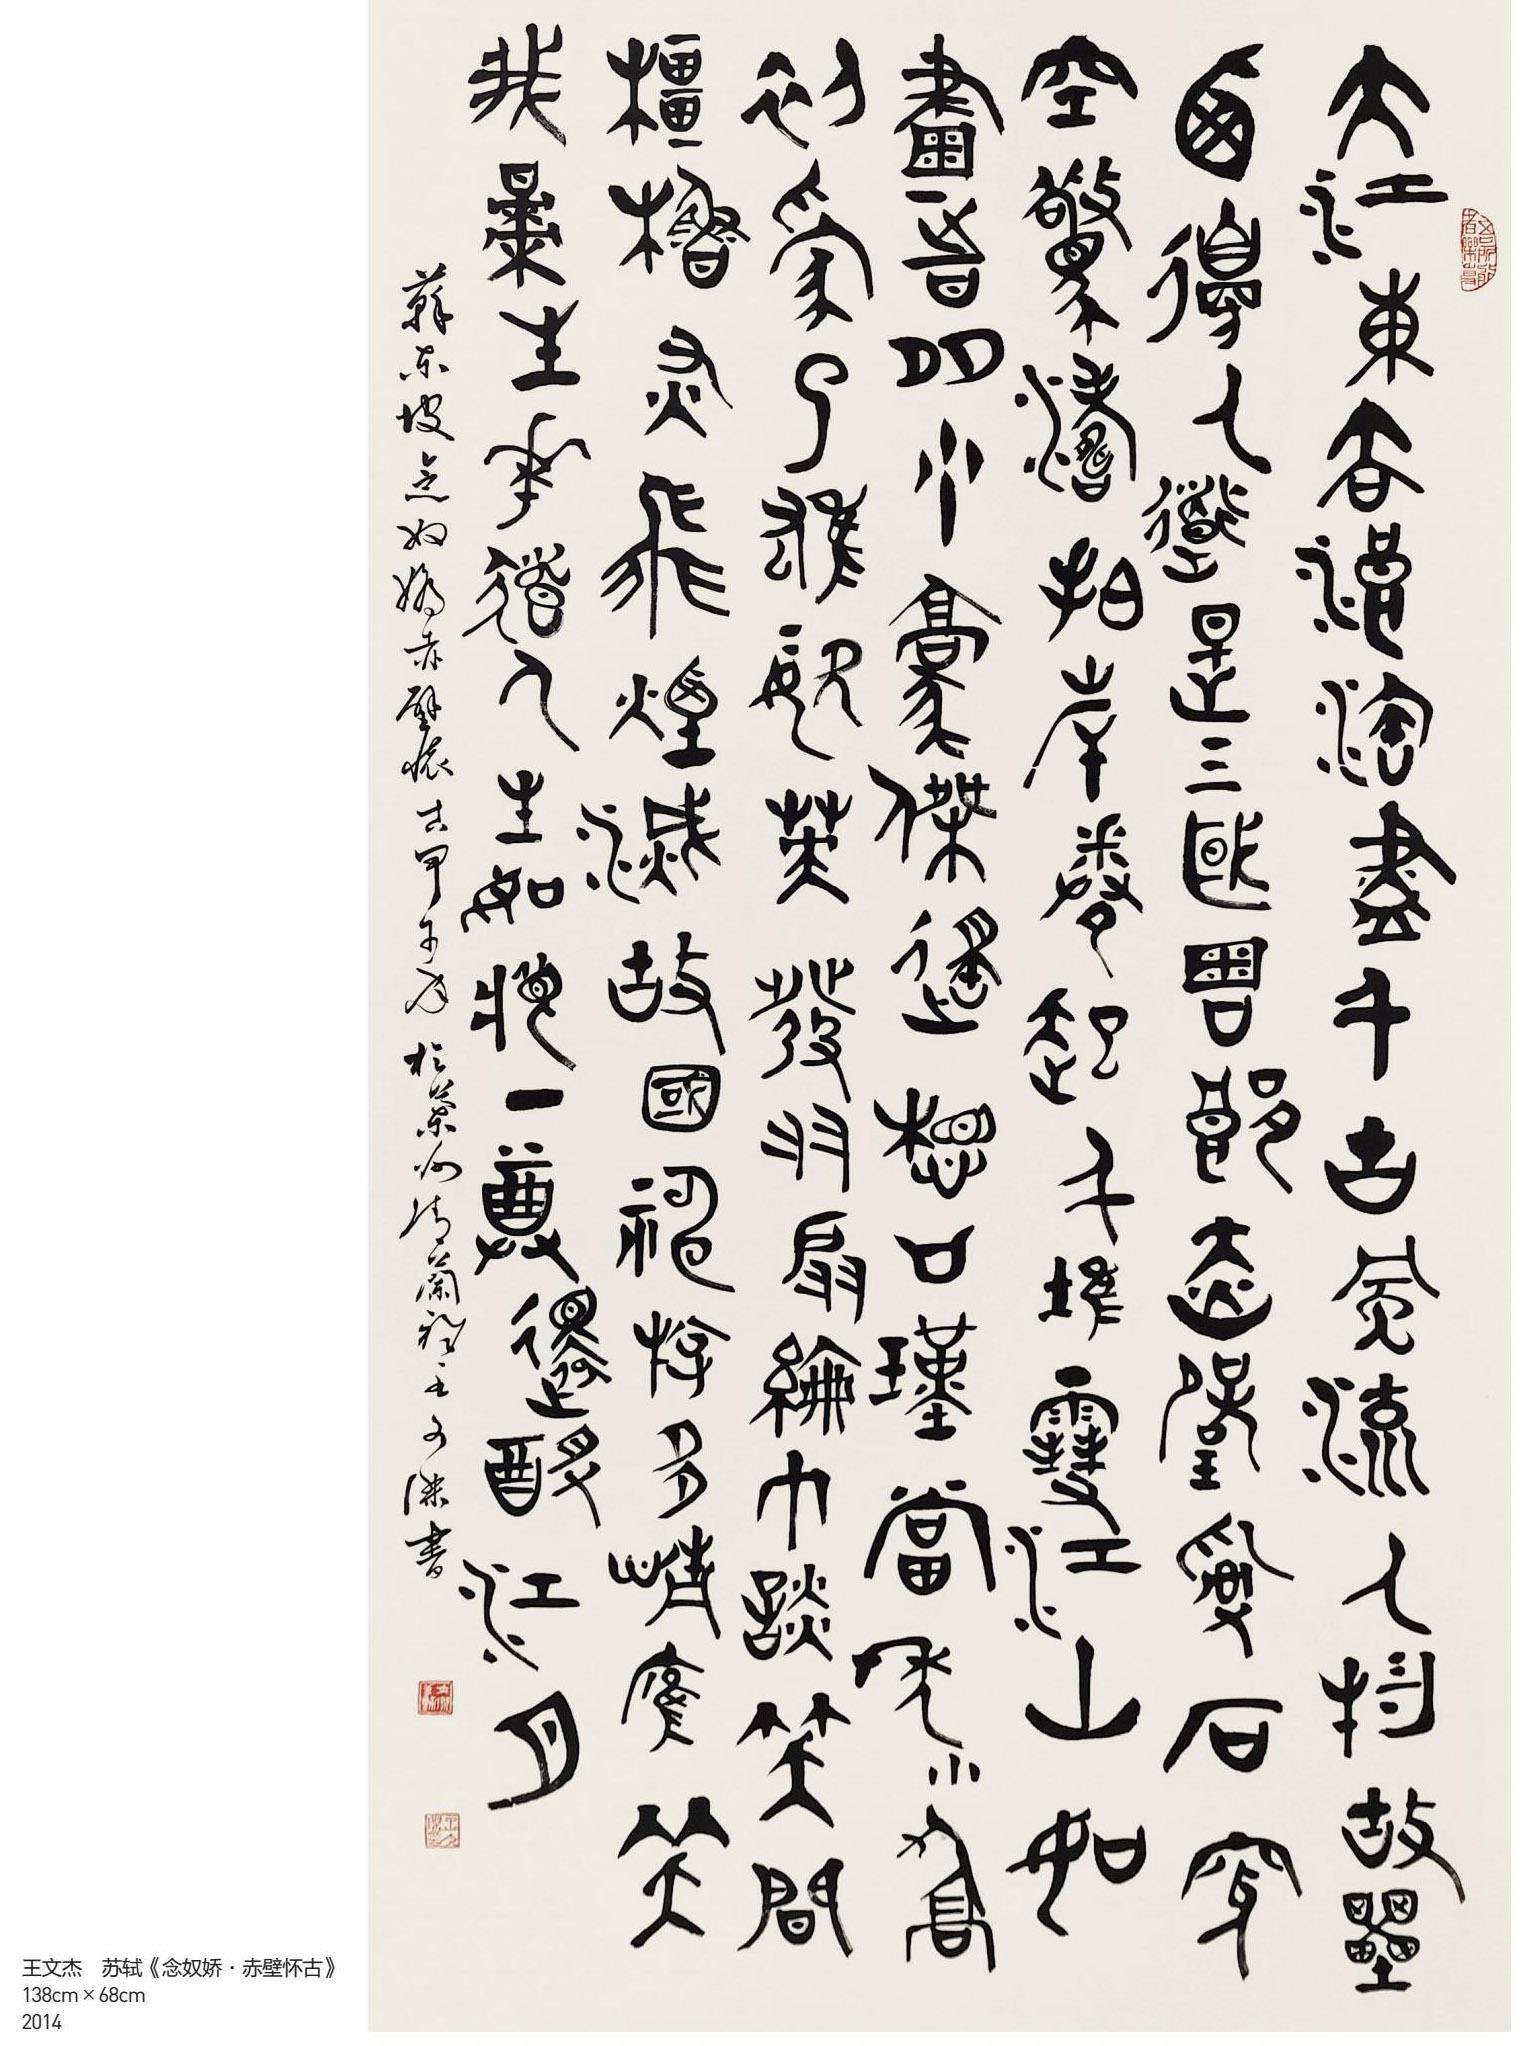 大江東去浪淘盡千古風流人物故壘
西邊人道是三國周郎赤壁亂石穿
空驚濤拍岸卷起千堆雪江山如
畫一時多少豪傑遙想公瑾當年小喬
初嫁了雄姿英發羽扇綸巾談笑間
檣櫓灰飛煙滅故國神遊多情應笑
我早生華髮人生如夢一尊還酹江月
蘇東坡念奴嬌赤壁懷古甲午年於蘭州清蘭王文傑書
王文杰 苏轼《念奴娇·赤壁怀古》
138cm×68cm
2014